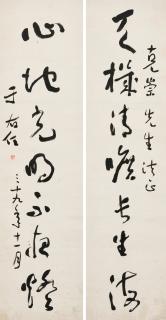 天機清曠長生海
亮崇先生法正
心地光明不夜燈
三十九年十一月
于右任